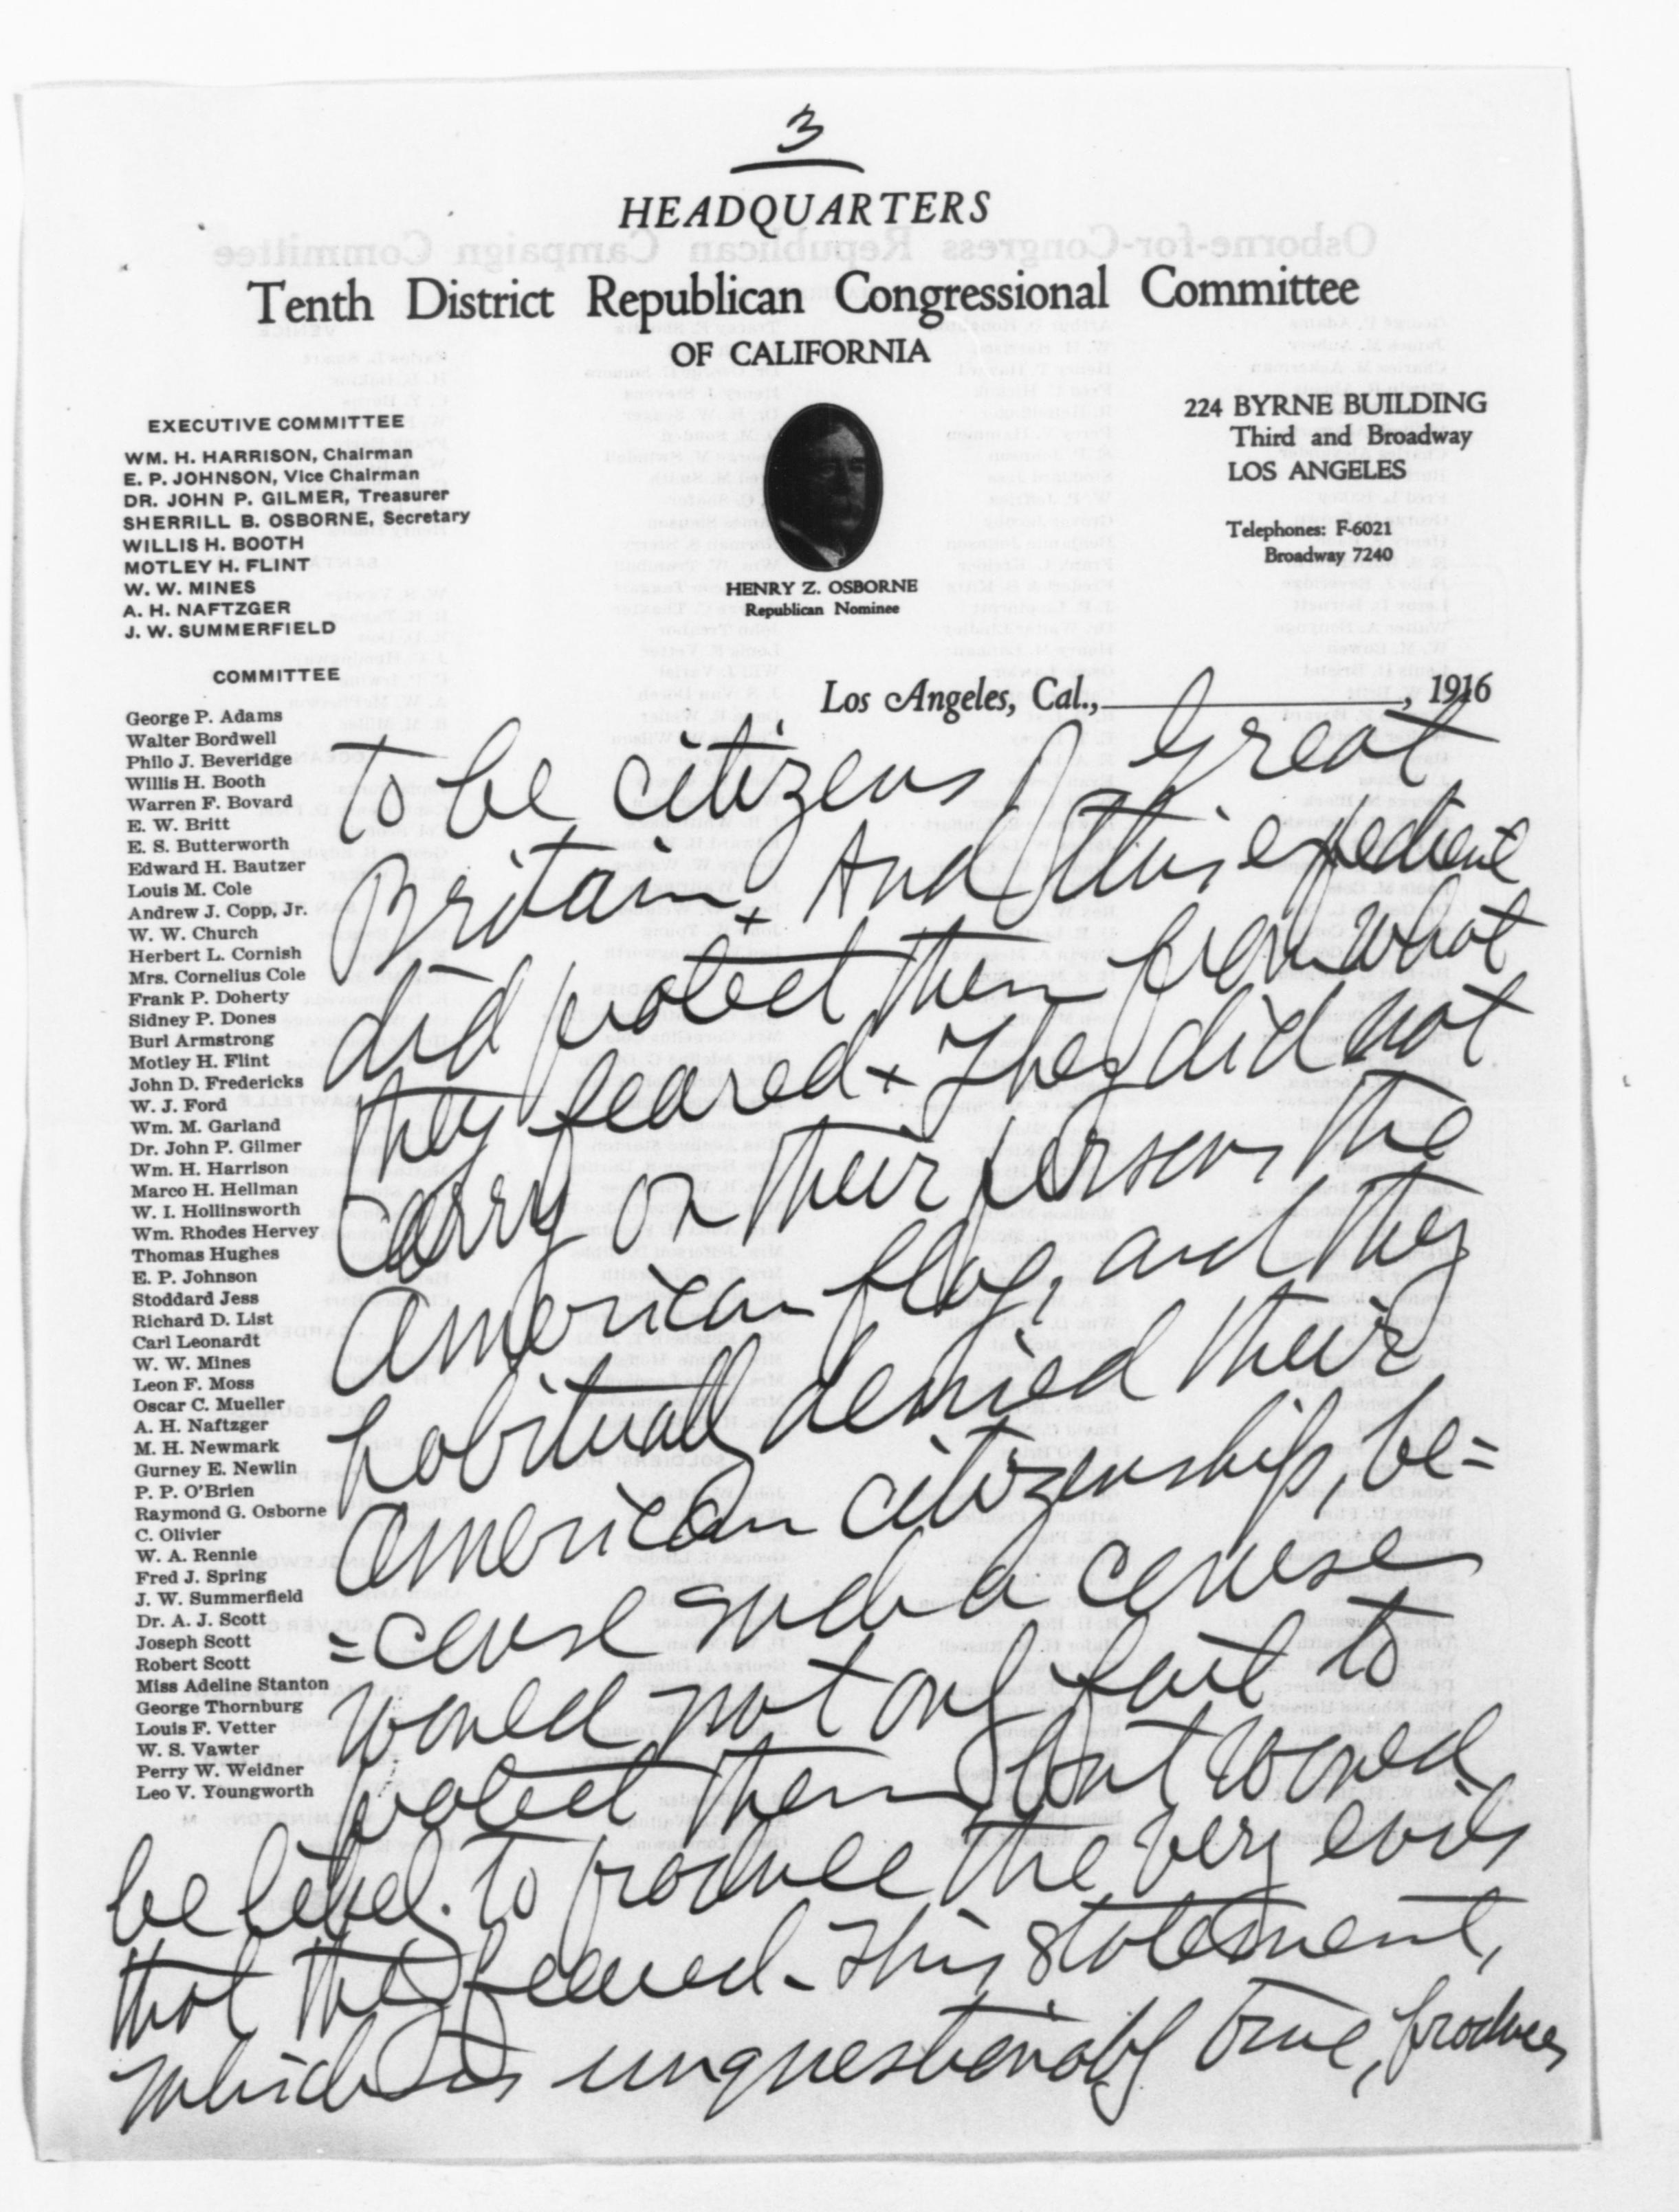 3
HEADQUARTERS
Tenth District Republican Congressional Committee
OF CALIFORNIA
EXECUTIVE COMMITTEE
WM. H. HARRISON, Chairman
E. P. JOHNSON, Vice Chairman
DR. JOHN P. GILMER, Treasurer
SHERRILL B. OSBORNE, Secretary
WILLIS H. BOOTH
MOTLEY H. FLINT
W. W. MINES
A. H. NAFTZGER
J. W. SUMMERFIELD
HENRY Z. OSBORNE
Republican Nominee
224 BYRNE BUILDING
Third and Broadway
LOS ANGELES
Telephones: F-6021
Broadway 7240
Los Angeles, Cal., , 1916
COMMITTEE
George P. Adams
Walter Bordwell
Philo J. Beveridge
Willis H. Booth
Warren F. Bovard
E. W. Britt
E. S. Butterworth
Edward H. Bautzer
Louis M. Cole
Andrew J. Copp, Jr.
W. W. Church
Herbert L. Cornish
Mrs. Cornelius Cole
Frank P. Doherty
Sidney P. Dones
Burl Armstrong
Motley H. Flint
John D. Fredericks
W. J. Ford
Wm. M. Garland
Dr. John P. Gilmer
Wm. H. Harrison
Marco H. Hellman
W. I. Hollinsworth
Wm. Rhodes Hervey
Thomas Hughes
E. P. Johnson
Stoddard Jess
Richard D. List
Carl Leonardt
W. W. Mines
Leon F. Moss
Oscar C. Mueller
A. H. Naftzger
M. H. Newmark
Gurney E. Newlin
P. P. O'Brien
Raymond G. Osborne
C. Olivier
W. A. Rennie
Fred J. Spring
J. W. Summerfield
Dr. A. J. Scott
Joseph Scott
Robert Scott
Miss Adeline Stanton
George Thornburg
Louis F. Vetter
W. S. Vawter
Perry W. Weidner
Leo V. Youngworth
to be citizens of Great
Britain. And this expedient
did protect them from what
they feared. They did not
carry on their persons the
American flag, and they
habitually denied their
American citizenship, be=
=cause such a course
would not only fail to
protect them but would
be likely to produce the very evils
that they feared. This statement,
which is unquestionably true, produces